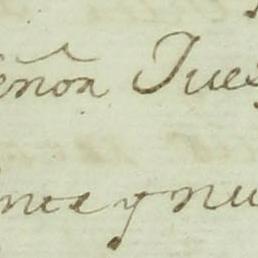 eñor Jues
nte y nu